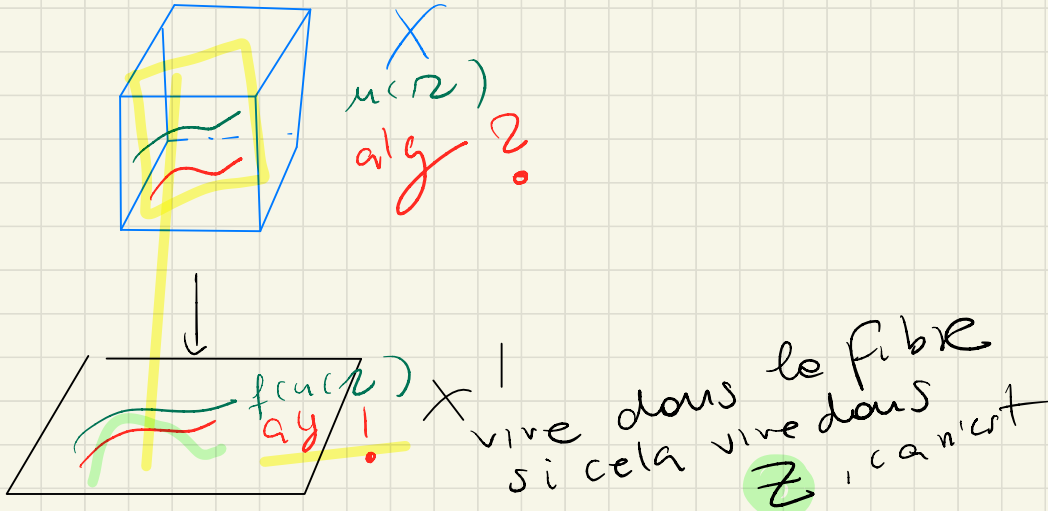 X
u(Ω)
alg ?
f(u(Ω))
ay !
X'
vive dans la fibre
si cela vive dans
Z, ca n'est